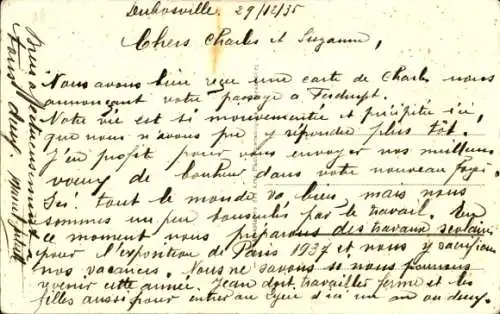 Dubosville. 29/12/35
Chers Charles et Suzanne,
Nous avons bien reçu une carte de Charles nous
annonçant votre passage à
Notre vie est si mouvementée et précipitée ici,
que nous n'avons pu y répondre plus tôt.
J'en profit pour vous envoyer nos meilleurs
vœux de bonheur dans votre nouveau foyer.
Ici tout le monde va bien mais nous
sommes un peu bousculés par le travail. En
ce moment nous préparons des travaux scolaires
pour l'exposition de Paris 1937 et nous y sacrifions
nos vacances. Nous ne savons si nous pourrons
y venir cette année. Jean doit travailler ferme et les
filles aussi pour entrer au lycée d'ici un an ou deux.
Bien affectueusement